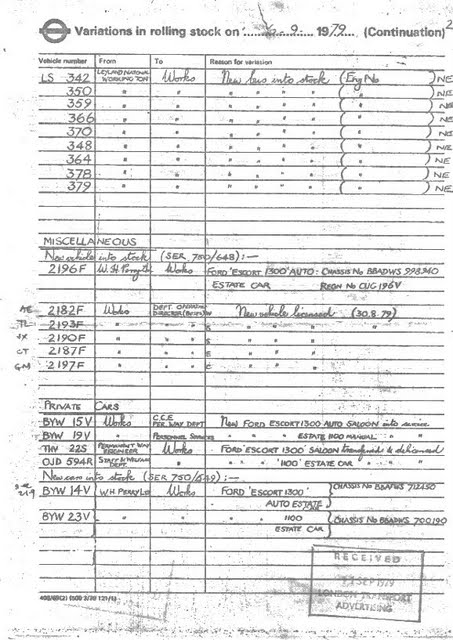 Variations in rolling stock on 9. 1979. (Continuation) 2
Vehicle number From To Reason for variation
LS 342 LEYLAND NATIONAL WORKINGTON Works New bus into stock (Eng No ) NE
350 " " " " " " ( " ) NE
359 " " " " " " NE
366 " " " " " " NE
370 " " " " " " NE
348 " " " " " " NE
364 " " " " " " NE
378 " " " " " " NE
379 " " " " " " NE
MISCELLANEOUS
New vehicle into stock (SER 750/648) :-
2196F W.H. Works FORD 'ESCORT 1300' AUTO : CHASSIS NO BBADWS 998340
ESTATE CAR REGN NO CUG 196V
2182F Works DEPT. OPERATING New vehicle licensed (30.8.79)
TL 2193F " " " " "
2190F " " " " "
CT 2187F " " " " "
GM 2197F " " " " "
PRIVATE CARS
BYW 15V Works C.C.E. PER. WAY DEPT New FORD ESCORT 1300 AUTO SALOON into service
BYW 19V " PERSONNEL SERVICES " " ESTATE 1100 MANUAL " "
22S PERMANENT WAY ENGINEER Works FORD 'ESCORT 1300' SALOON transferred & delicensed
OJD 594R STAFF & WELFARE DEPT. " " " '1100' ESTATE CAR " "
New cars into stock (SER 750/649) :-
BYW 14V W.H. PERRY Works FORD 'ESCORT 1300' CHASSIS NO BBAFWS 712450
AUTO ESTATE
BYW 23V " " " " 1100 CHASSIS NO BBADWS 700190
ESTATE CAR
RECEIVED
SEP 1979
LONDON TRANSPORT
ADVERTISING